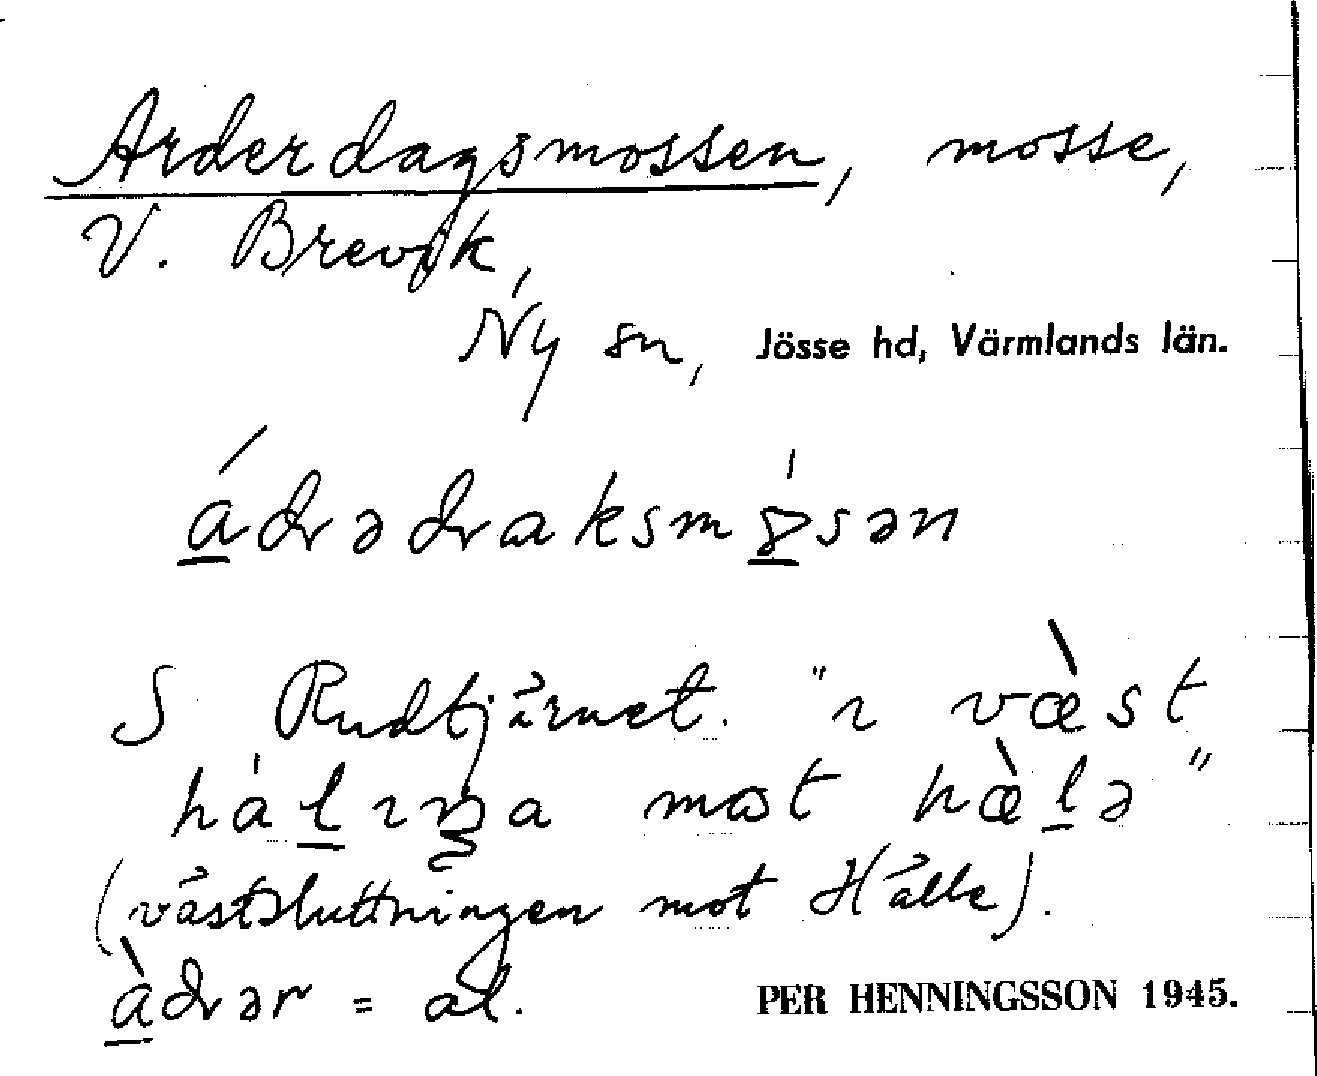 Arderdagsmossen, mosse,
V. Brevik,
Ny sn, Jösse hd, Värmlands län.
ádrədraksmo̩̍sən
S Rudtjärnet. "ı væ̀st
hálıŋa mot hæ̀lə"
(västsluttningen mot Hälle).
àdrər = al. PER HENNINGSSON 1945.